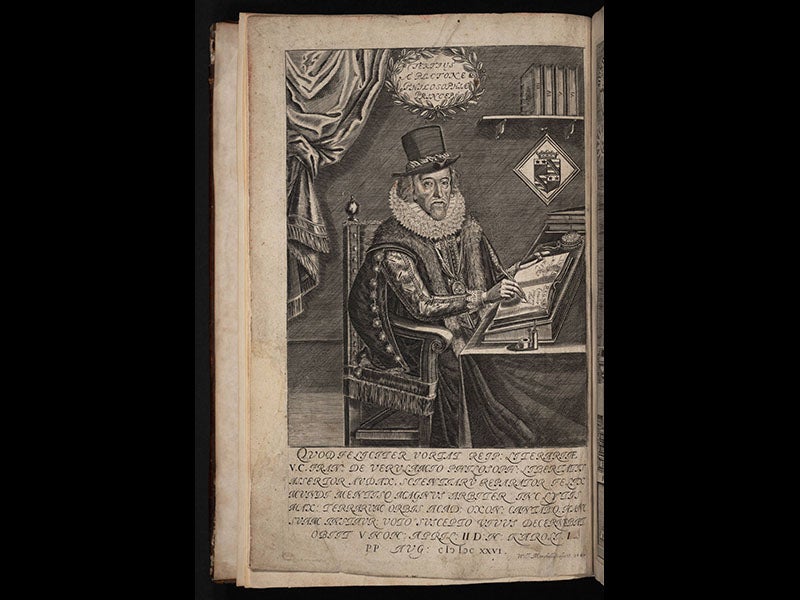 TERTIUS
A PLATONE
PHILOSOPHIÆ
PRINCEPS
QUOD FELICITER VORTAT REIP: LITERARIÆ
V.C. FRAN: DE VERULAMIO PHILOSOPH: LIBERTATIS
ASSERTOR AUDAX, SCIENTIARŪ REPARATOR FELIX
MUNDI MENTISQ MAGNUS ARBITER INCLYTIS
MAX: TERRARUM ORBIS ACAD: OXON: CANTABQ HANC
SUAM INSTAUR: VOTO SUSCEPTO VIVUS DECERNEBAT
OBIIT V NON: APRIL: II D.N. KAROLI I
PP AUG: CIↃIↃC XXVI.
Will: Marshall sculpsit.